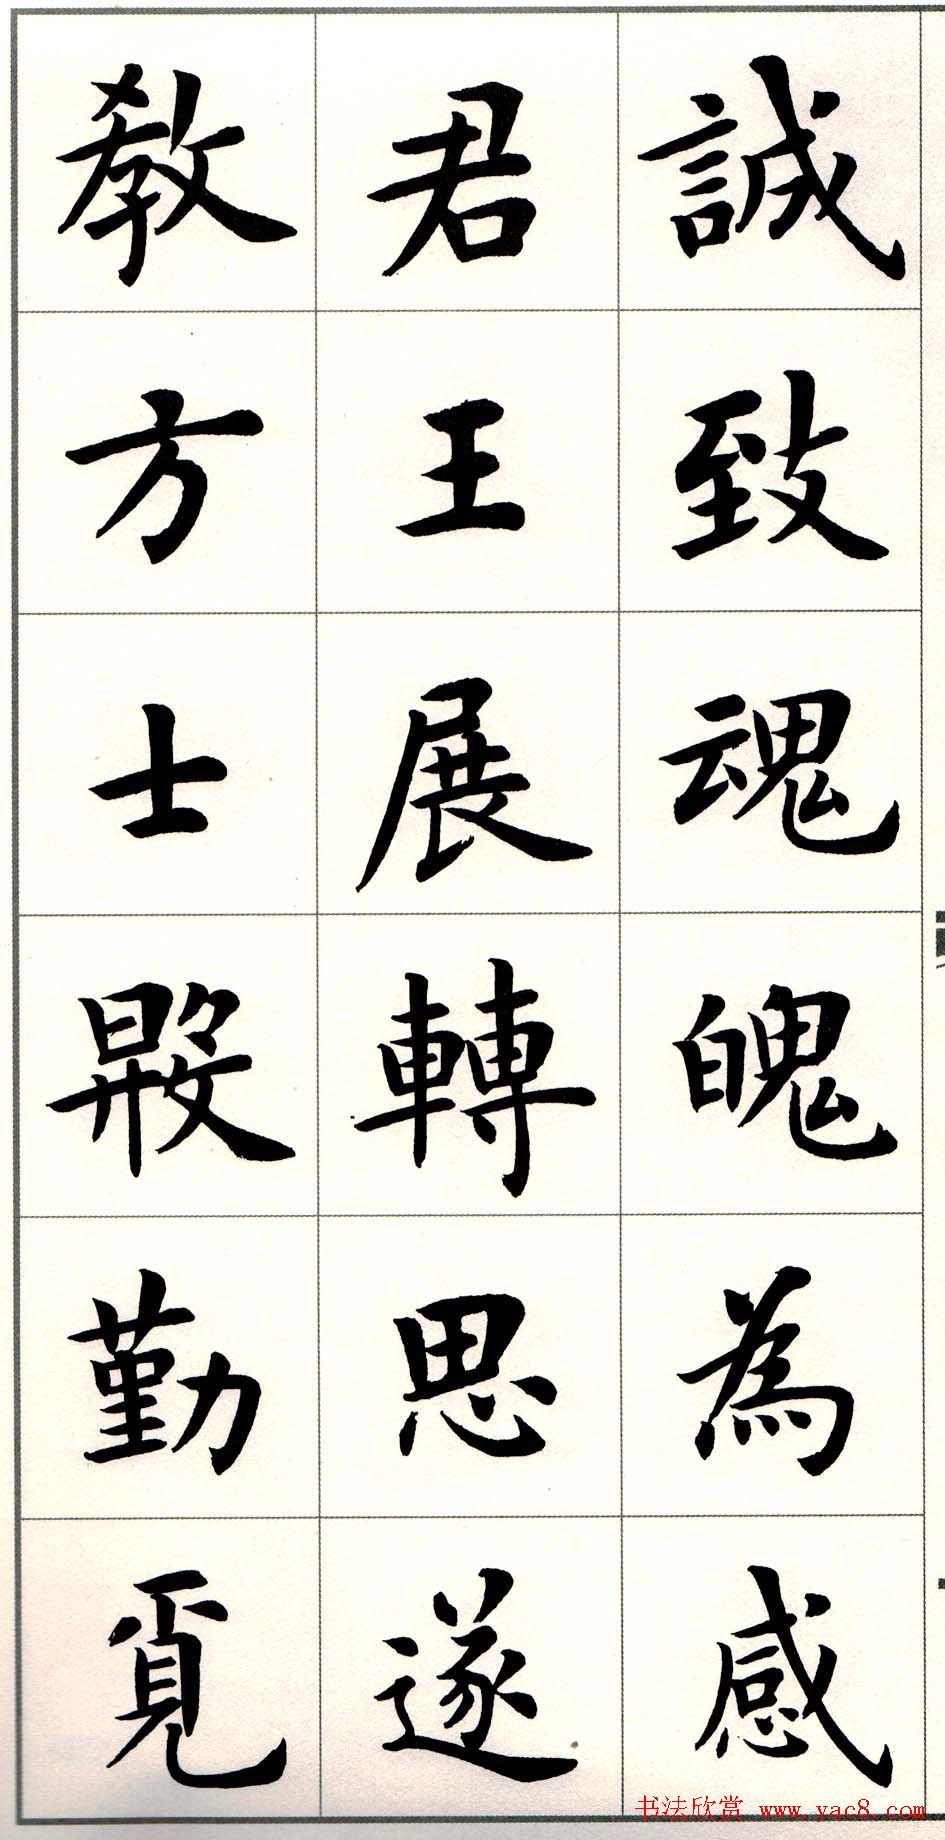 誠致魂魄為感
君王展轉思遂
教方士殷勤覓
书法欣赏 www.yac8.com